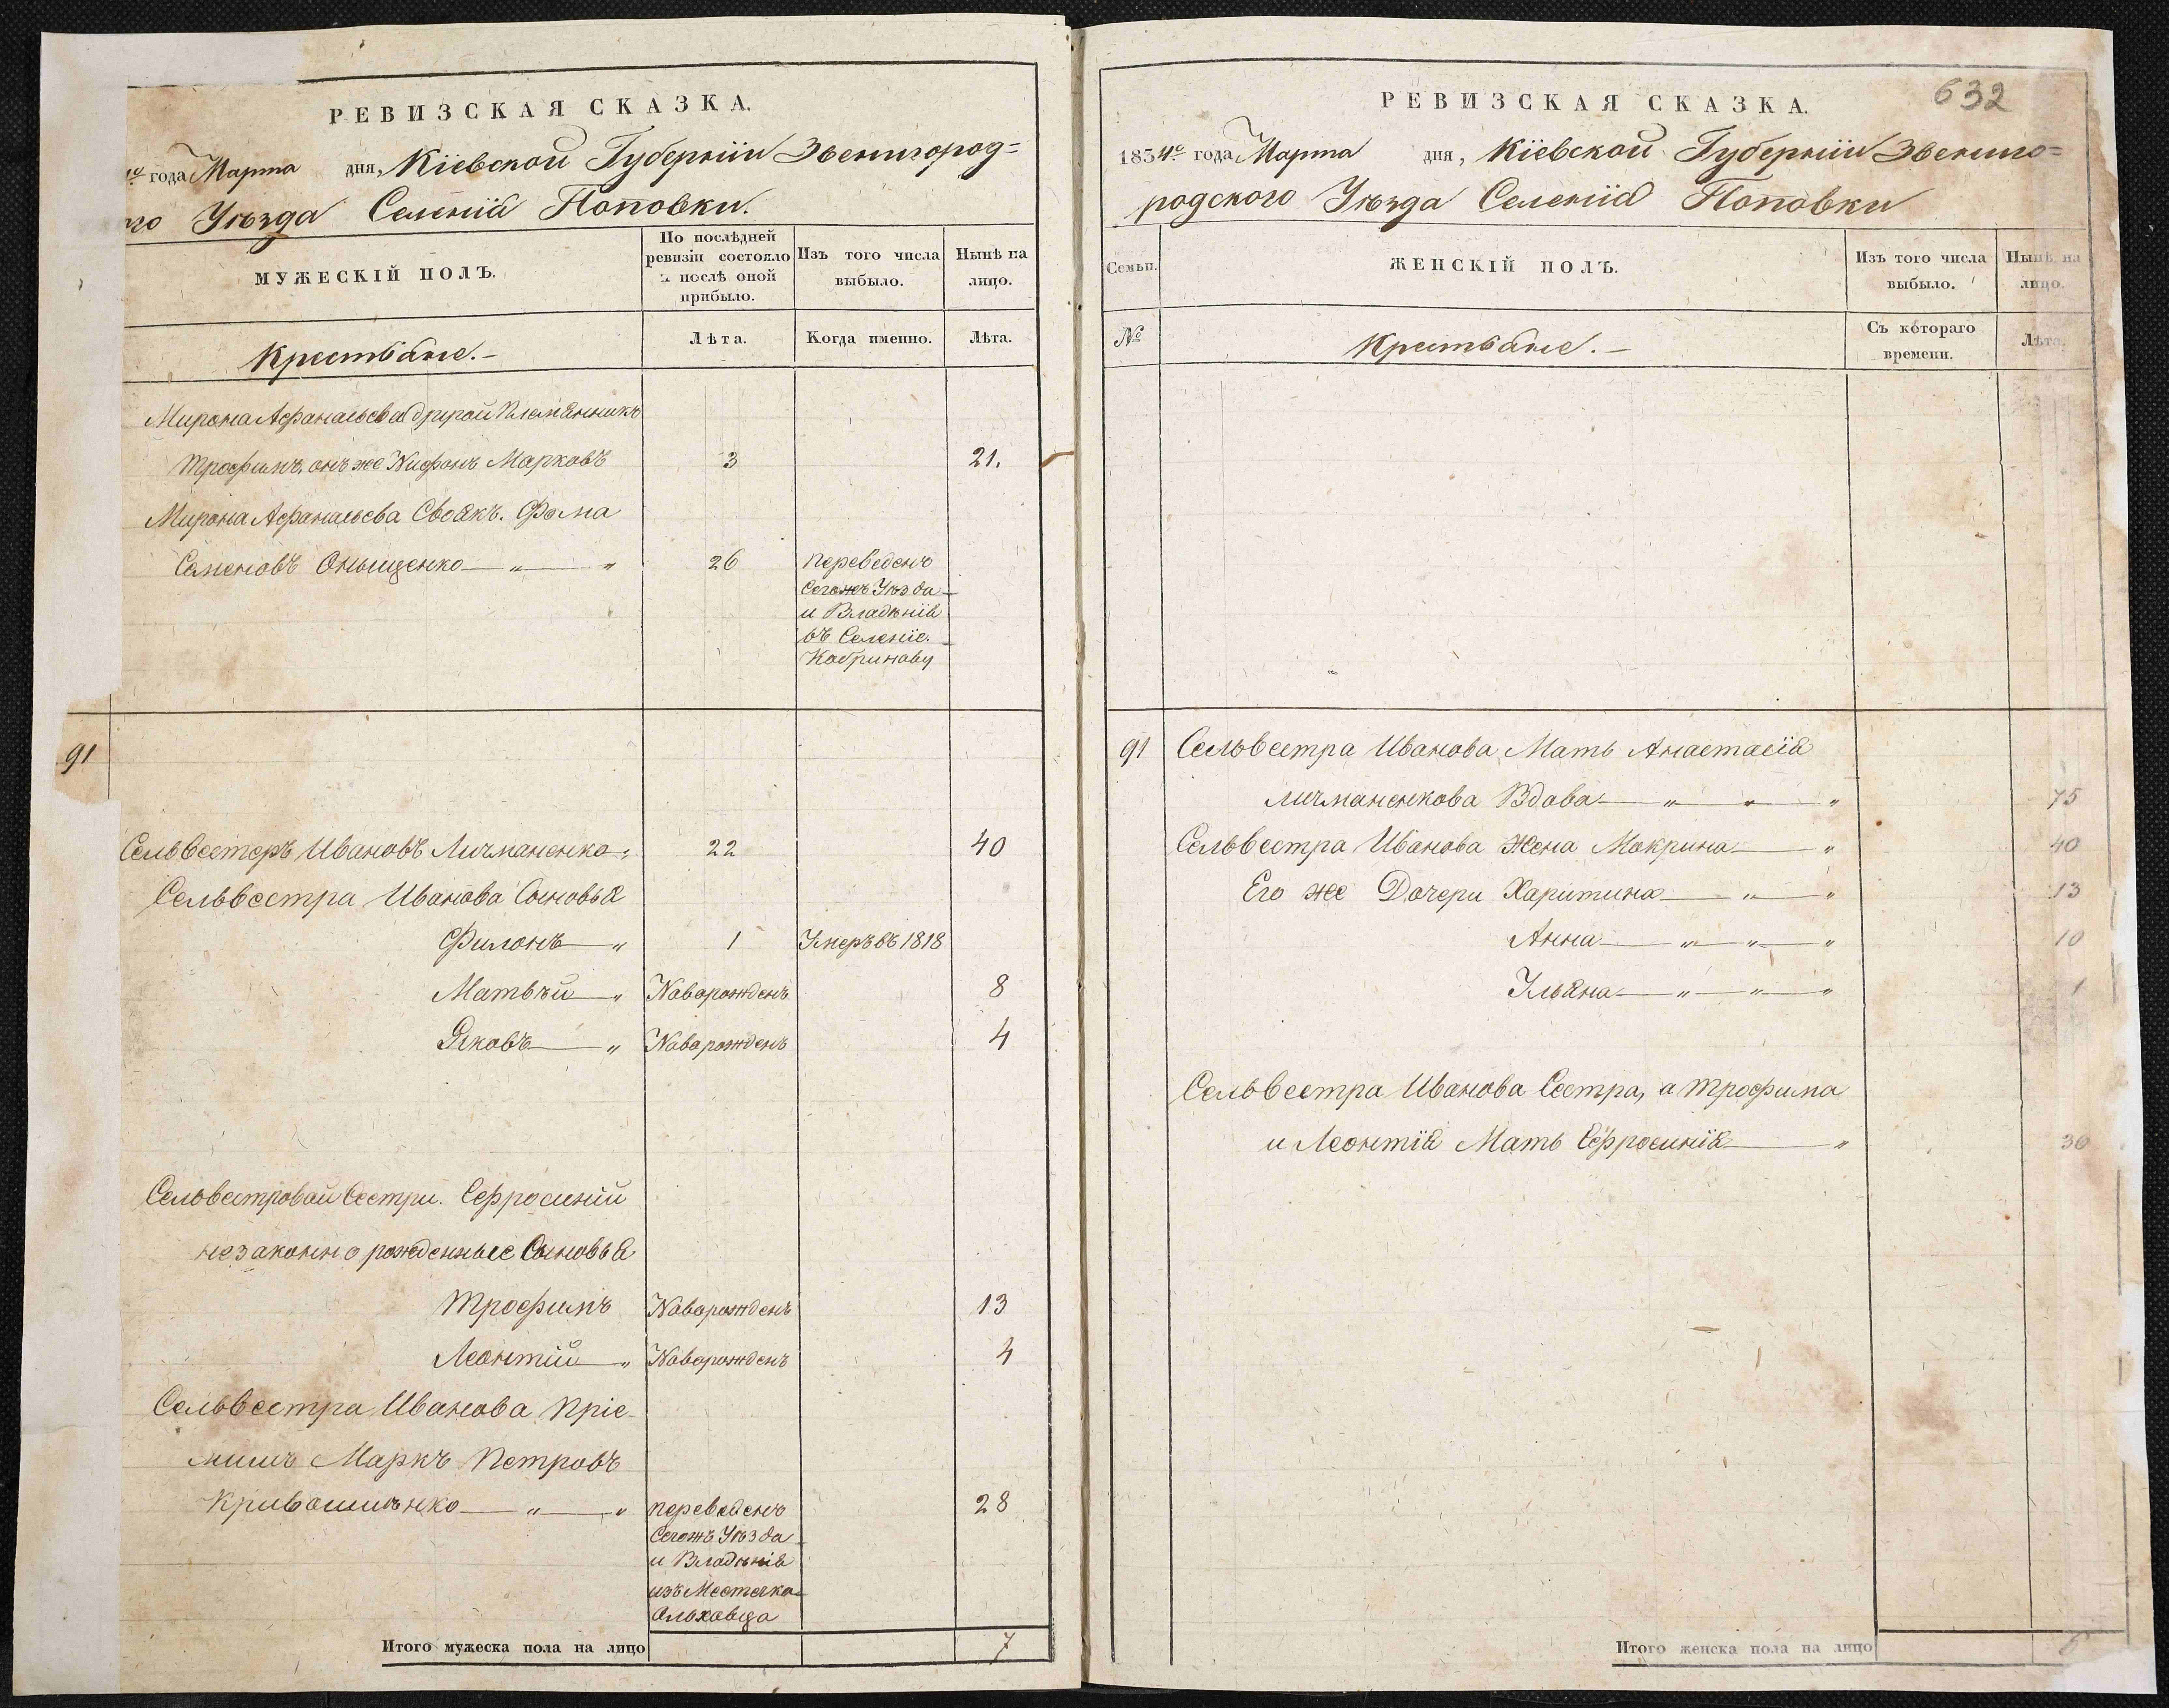 РЕВИЗСКАЯ СКАЗКА.
года Марта дня, Кіевской Губерніи Звенигород=
го Уѣзда Селенія Поповки.
МУЖЕСКІЙ ПОЛЪ.
По послѣдней ревизіи состояло и послѣ оной прибыло.
Изъ того числа выбыло.
Нынѣ на лицо.
Крестьяне.-
Лѣта.
Когда именно.
Лѣта.
Мирона Афанасьева другой Племянникъ
Трофимъ онъ же Нифонъ Марковъ 3 21.
Мирона Афанасьева Своякъ. Фома
Семеновъ Онищенко — " — " 26 переведенъ
Сегожъ Уѣзда
и Владѣнія
въ Селеніе.
91
Сельвестеръ Ивановъ Личманенко 22 40
Сельвестра Иванова Сыновья
Филонъ — " 1 Умеръ въ 1818
Матвѣй — " Наворожденъ 8
Яковъ — " Наворожденъ 4
Сельвестровой Сестри. Ефросиніи
незаконно рожденные Сыновья
Трофимъ Наворожденъ 13
Леонтій — " Наворожденъ 4
Сельвестра Иванова Пріе-
мишъ Маркъ Петровъ
— " — " переведенъ 28
Сегожъ Уѣзда
и Владѣнія
изъ Местечка
Ольховца
Итого мужеска пола на лицо 7
632
РЕВИЗСКАЯ СКАЗКА.
1834го года Марта дня, Кіевской Губерніи Звениго=
родского Уѣзда Селенія Поповки
Семьи.
ЖЕНСКІЙ ПОЛЪ.
Изъ того числа выбыло.
Нынѣ на лицо.
№
Крестьяне.-
Съ котораго времени.
Лѣта.
91 Сельвестра Иванова Мать Анастасія
Личманенкова Вдова — " " " 75
Сельвестра Иванова Жена Мокрина — " 40
Его же Дочери Харитина — " — " 13
Анна — " — " — " 10
Ульяна — " — " — " 1
Сельвестра Иванова Сестра, а Трофима
и Леонтія Мать Ефросинія — " 36
Итого женска пола на лицо